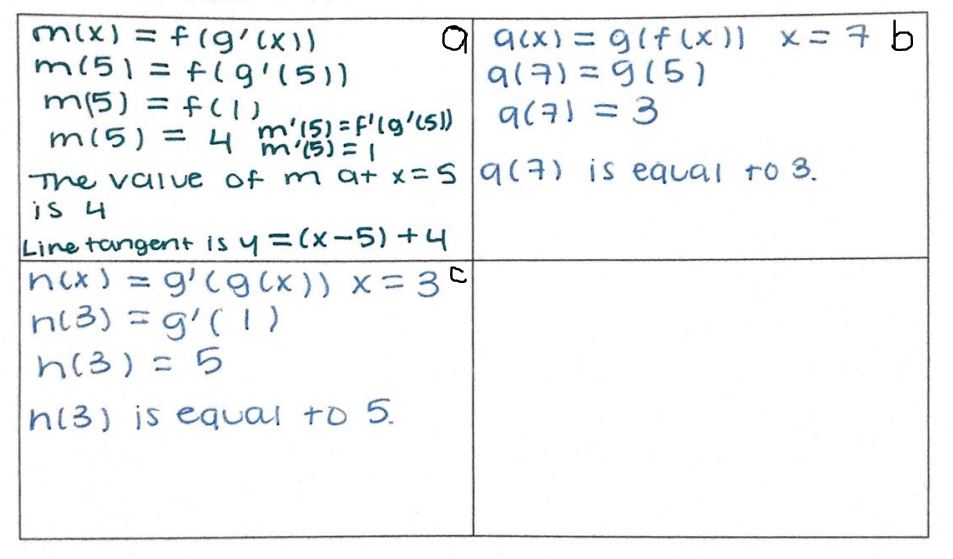 a
m(x) = f(g'(x))
m(5) = f(g'(5))
m(5) = f(1)
m(5) = 4
m'(5) = f'(g'(5))
m'(5) = 1
The value of m at x=5
is 4
Line tangent is y = (x-5) + 4
b
q(x) = g(f(x)) x = 7
q(7) = g(5)
q(7) = 3
q(7) is equal to 3.
c
n(x) = g'(g(x)) x = 3
n(3) = g'(1)
n(3) = 5
n(3) is equal to 5.